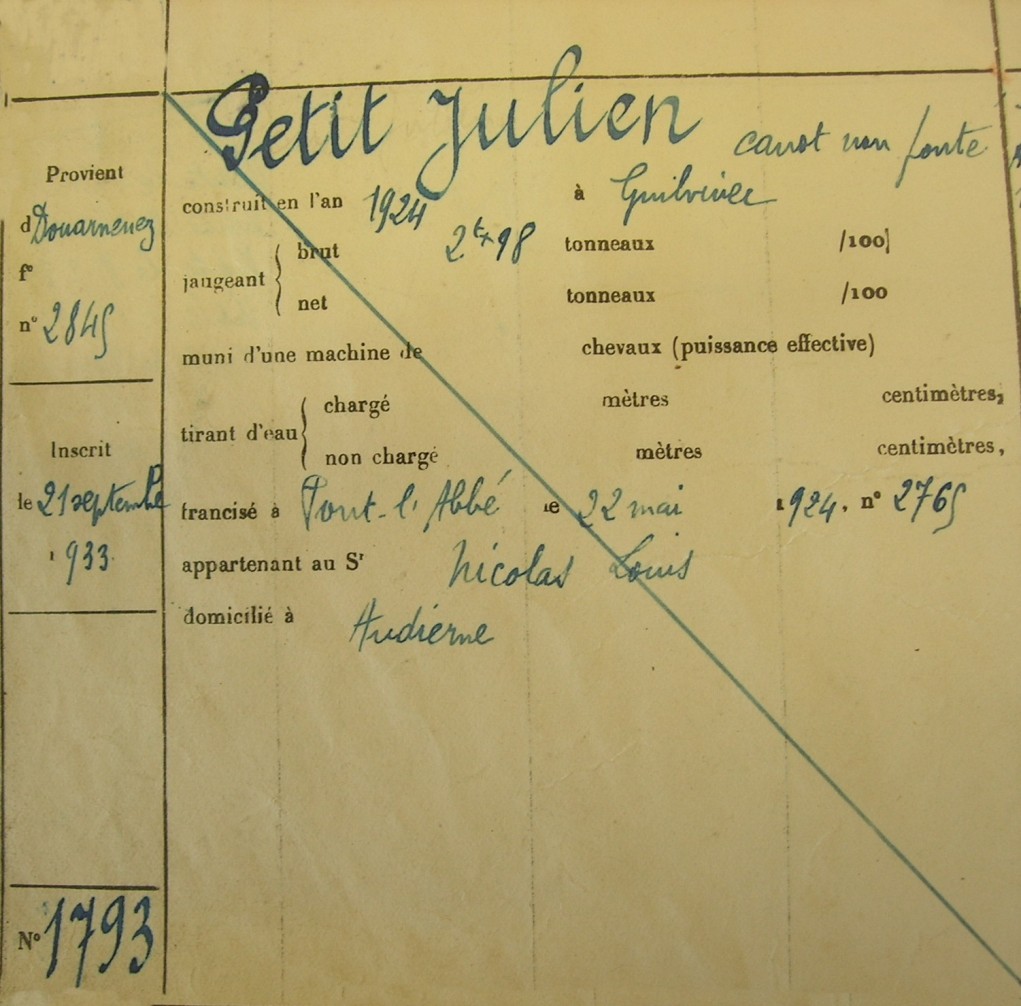 Provient
d Douarnenez
f°
n° 2845
Inscrit
le 21 septembre
1933
N° 1793
Petit Julien canot non ponté
construit en l'an 1924 à Guilvinec
jaugeant { brut 2tx98 tonneaux /100
net tonneaux /100
muni d'une machine de chevaux (puissance effective)
tirant d'eau { chargé mètres centimètres,
non chargé mètres centimètres,
francisé à Pont-l'Abbé le 22 mai 1924, n° 2765
appartenant au Sr Nicolas Louis
domicilié à Audierne